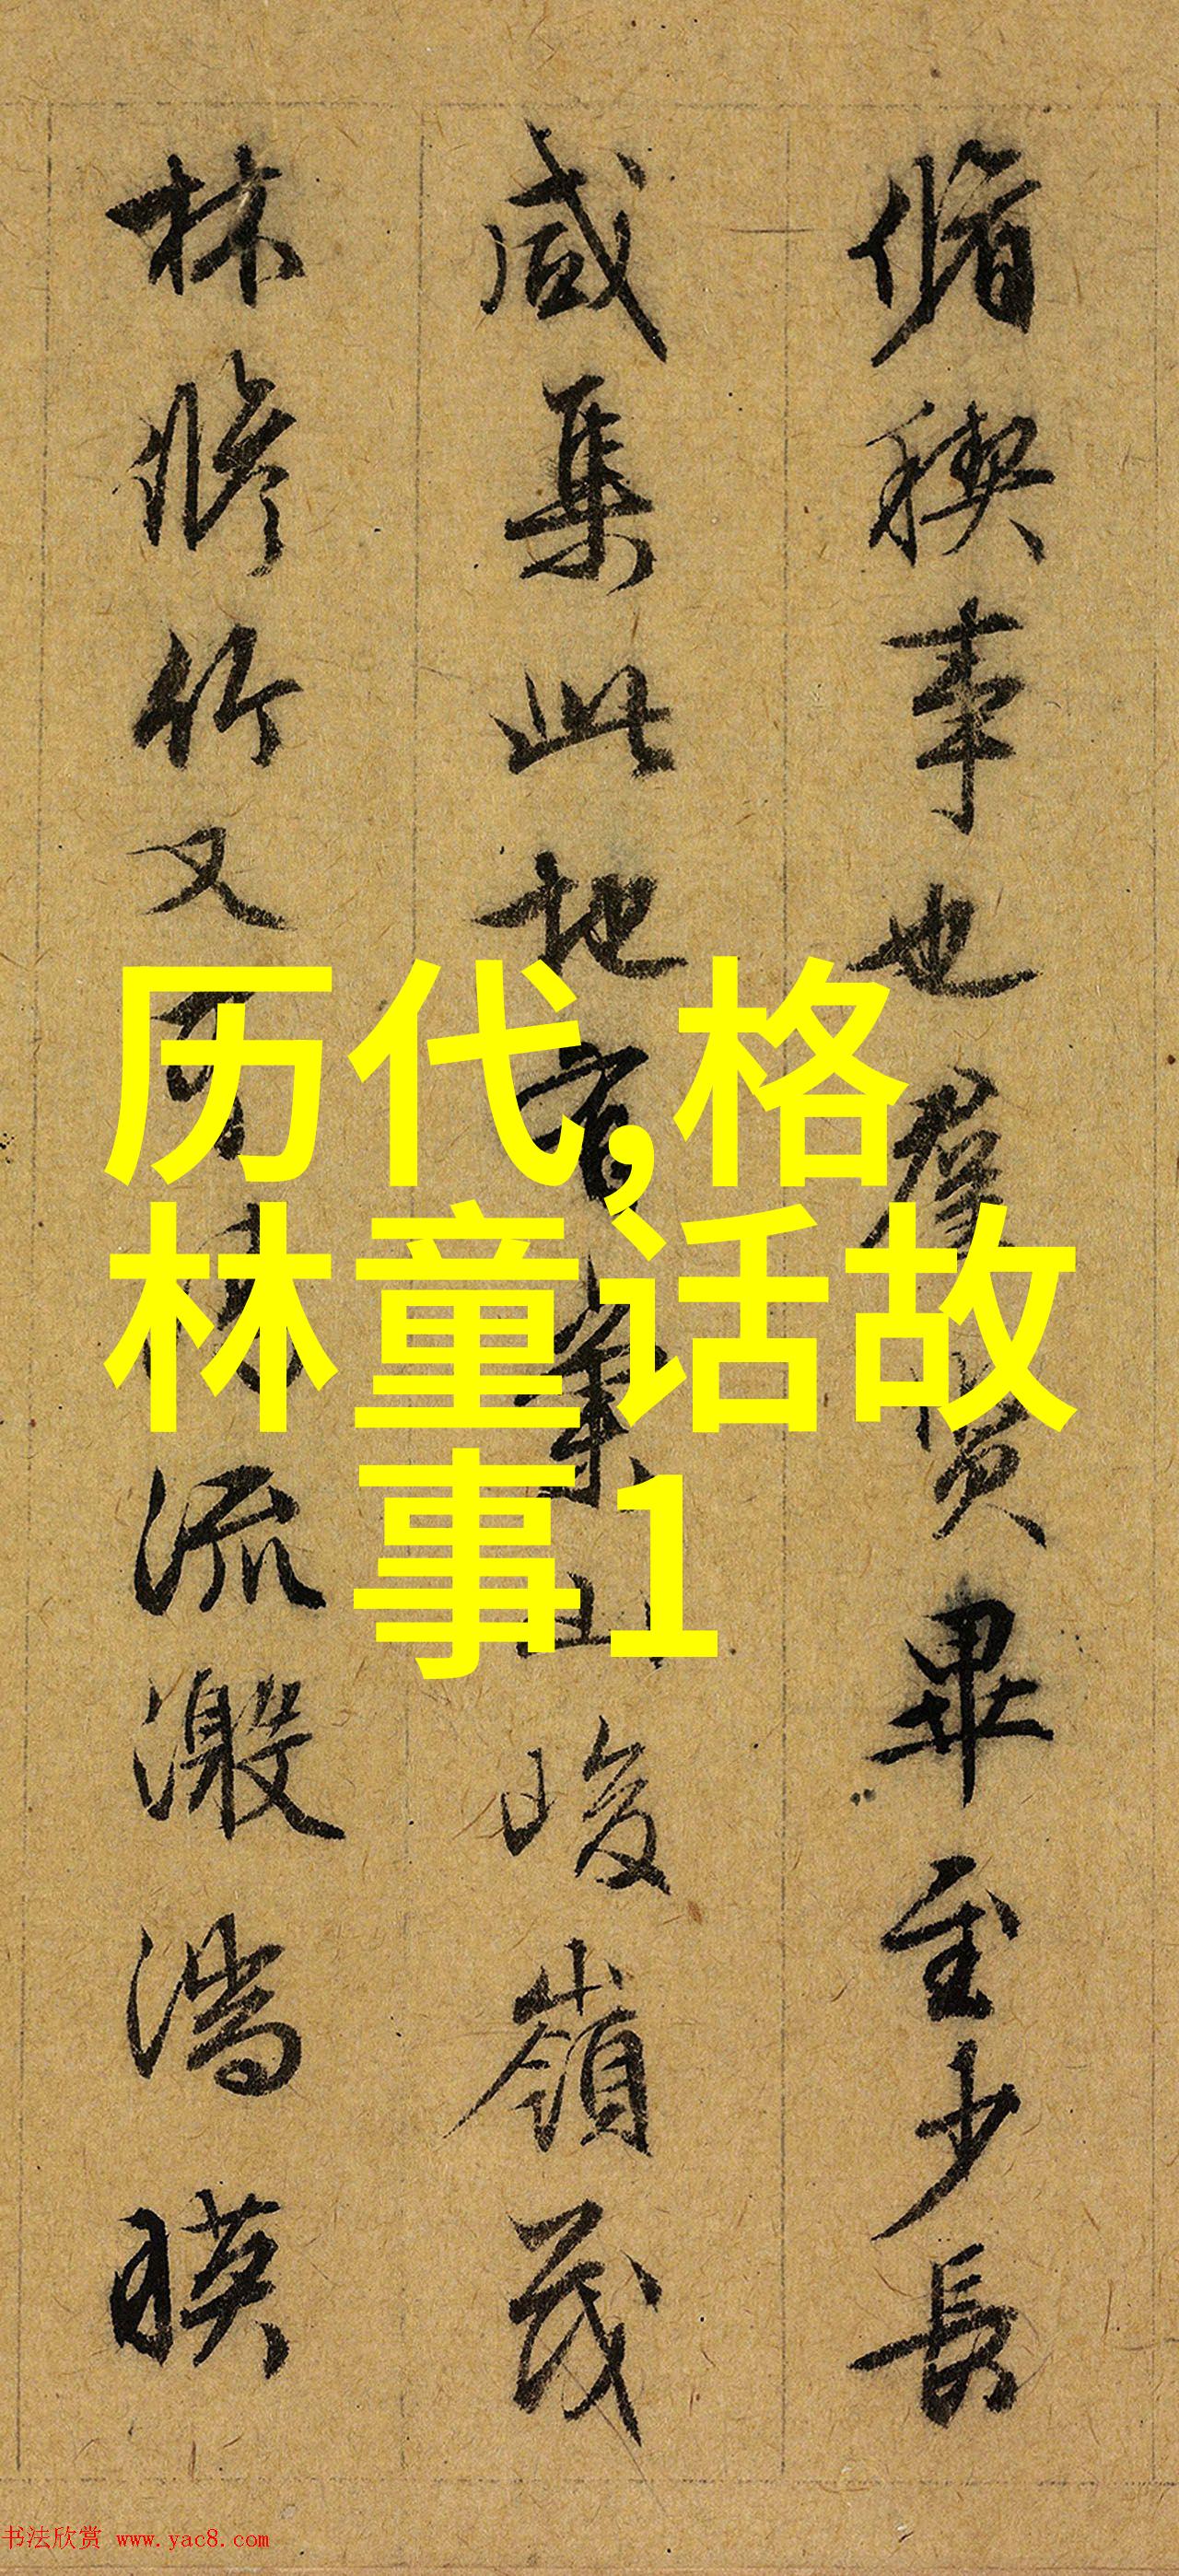 脩稧事也羣賢畢至少長
咸集此地有山峻嶺茂
林脩竹又流激湍暎
历代,格
林童话故
事1
书法欣赏 www.yac8.com